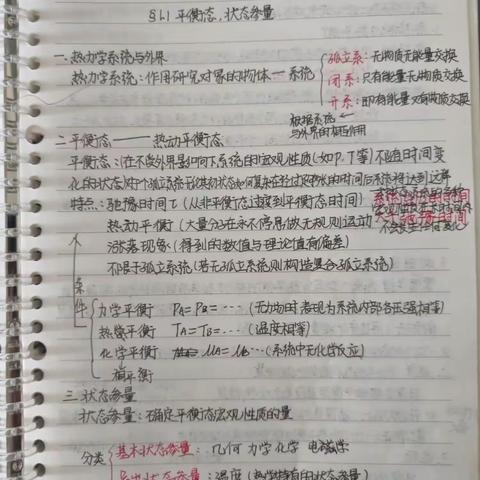 §1.1 平衡态、状态参量
一.热力学系统与外界
热力学系统：作用研究对象的物体—系统
孤立系：无物质无能量交换
闭系：只有能量无物质交换
开系：即有能量又有物质交换
根据系统
与外界的相互作用
二.平衡态——热动平衡态
平衡态：(在不受外界影响下系统的宏观性质(如P.T等)不随时间变
化的状态)对于个孤立系统无论其初状态如何复杂在经过足够长的时间后系统将达到这样
特点：弛豫时间τ(从非平衡态过渡到平衡态时间)
热动平衡(大量分子在永不停息做无规则运动
涨落现象(得到的数值与理论值有偏差)
不限于孤立系统(若无孤立系统则构造复合孤立系统)
条件
力学平衡 PA=PB=…(无力场时表现为系统内部各压强相等)
热平衡 TA=TB=…(温度相等)
化学平衡 μA=μB…(系统中无化学反应)
相平衡
三.状态参量
状态参量：确定平衡态宏观性质的量
分类
基本状态参量：几何 力学 化学 电磁学
导出状态参量：温度(热学特有的状态参量)